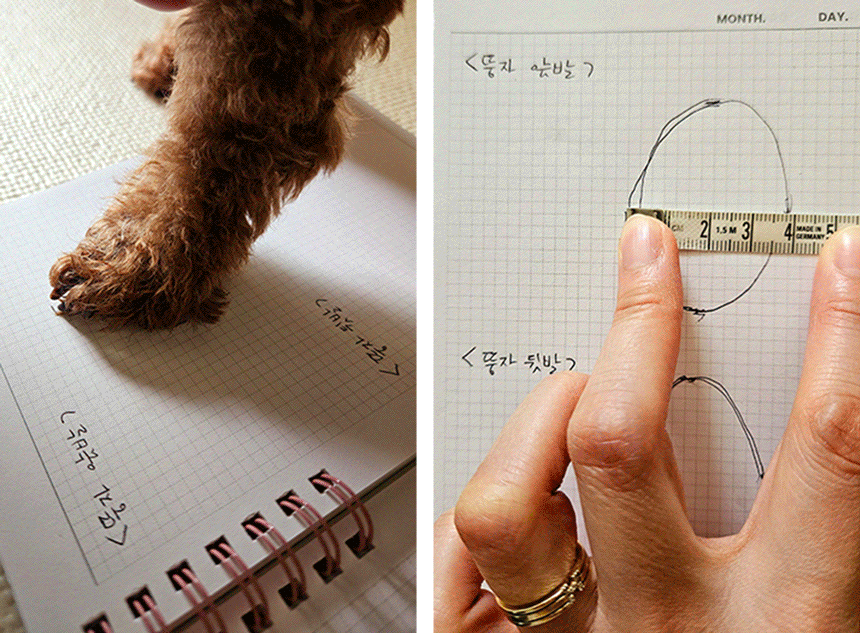 <뚱자 앞발>
<뚱자 뒷발>
MONTH. DAY.
<뚱자 앞발>
CM 2 1,5 M 3 4 MADE IN GERMANY 5
<뚱자 뒷발>